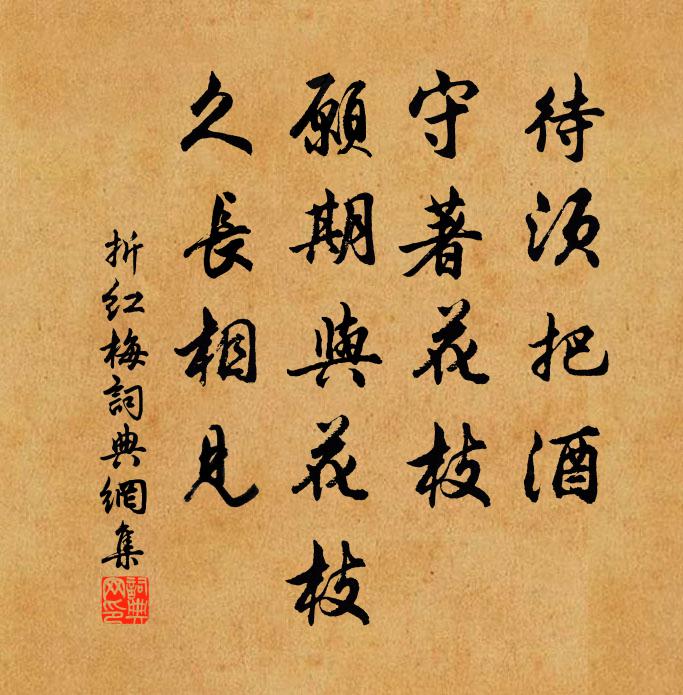 待须把酒
守著花枝
願期與花枝
久長相見
折红梅詞典網集
詞典
网印